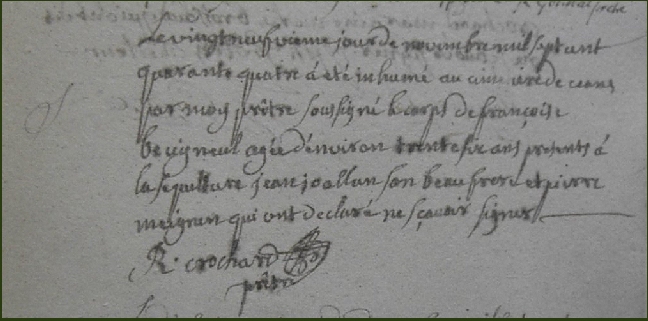 Le vingt neufvieme jour de novembre mil sept cent
quarante quatre á été inhumé au cimetiere de ceans
par moy prêtre soussigné le corps de françoise
agée d'environ trente six ans presents á
la sepulture jean joallan son beau frere et pierre
meignan qui ont declaré ne sçavoir signer
R. crochard
prêtre